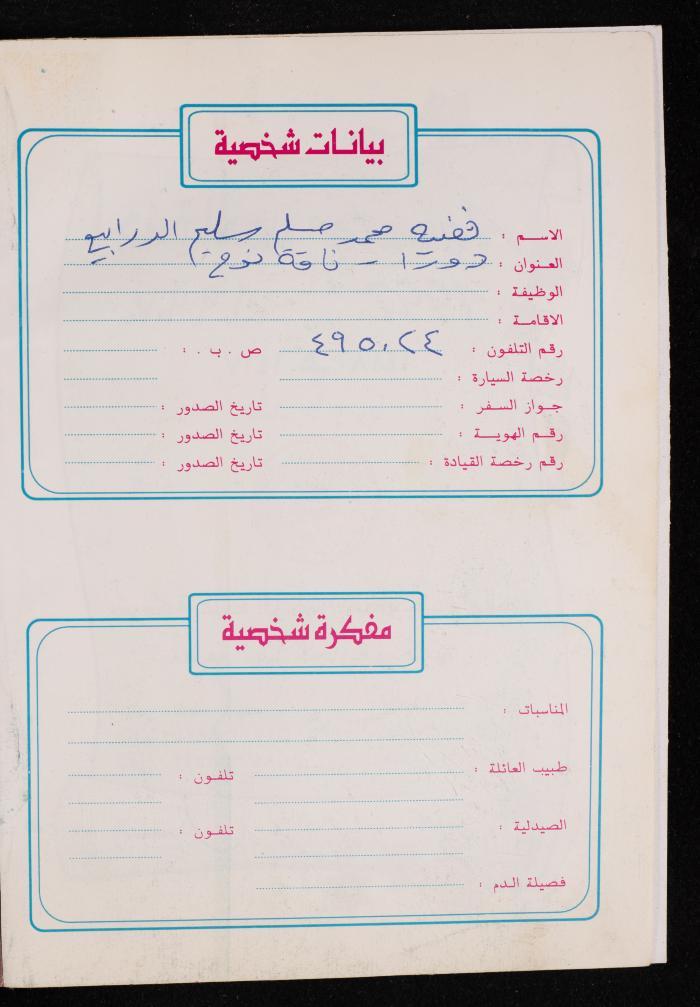 بيانات شخصية
الاسم : محمد مسلم سليم الدرابيع
العنوان : دورا - ناقة نوح
الوظيفة :
الاقامة :
رقم التلفون : ٤٩٥٠٢٤ ص . ب . :
رخصة السيارة :
جواز السفر : تاريخ الصدور :
رقم الهوية : تاريخ الصدور :
رقم رخصة القيادة : تاريخ الصدور :
مفكرة شخصية
المناسبات :
طبيب العائلة : تلفون :
الصيدلية : تلفون :
فصيلة الدم :